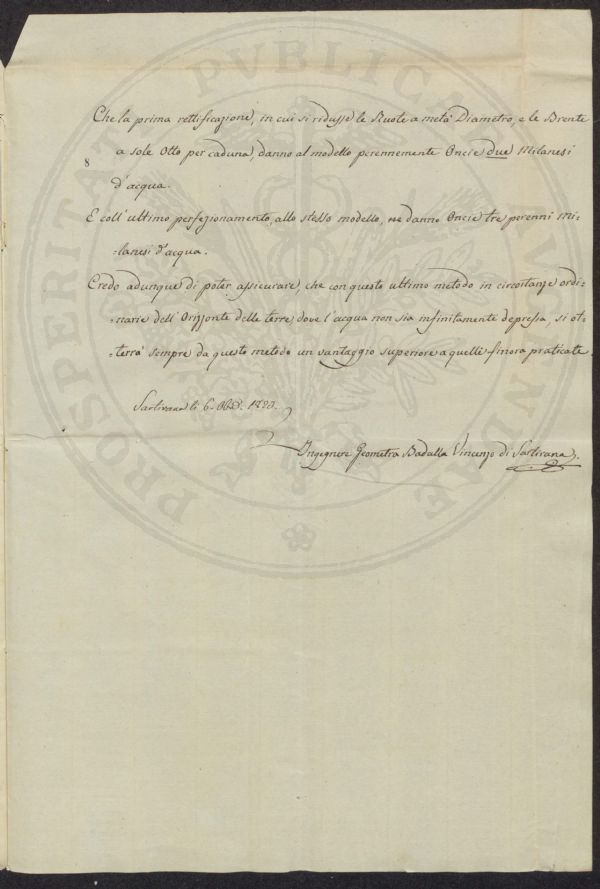 Che la prima rettificazione, in cui si ridusse le Ruote a metà Diametro, e le Brente
8
a sole Otto per caduna, danno al modello perennemente Oncie due Milanesi
d'acqua.
E coll'ultimo perfezionamento, allo stesso modello, ne danno Oncie tre perenni Mi=
=lanesi d'acqua.
Credo adunque di poter assicurare, che con questo ultimo metodo in circostanze ordi=
=narie dell'Orizzonte delle terre, dove l'acqua non sia infinitamente depressa, si ot=
=terrà sempre da questo metodo un vantaggio superiore a quelli finora praticate.
Sartirana li 6.
Ingegnere Geometra Badalla Vincenzo di Sartirana.
PROSPERITATI PVBLICAE AVGENDAE